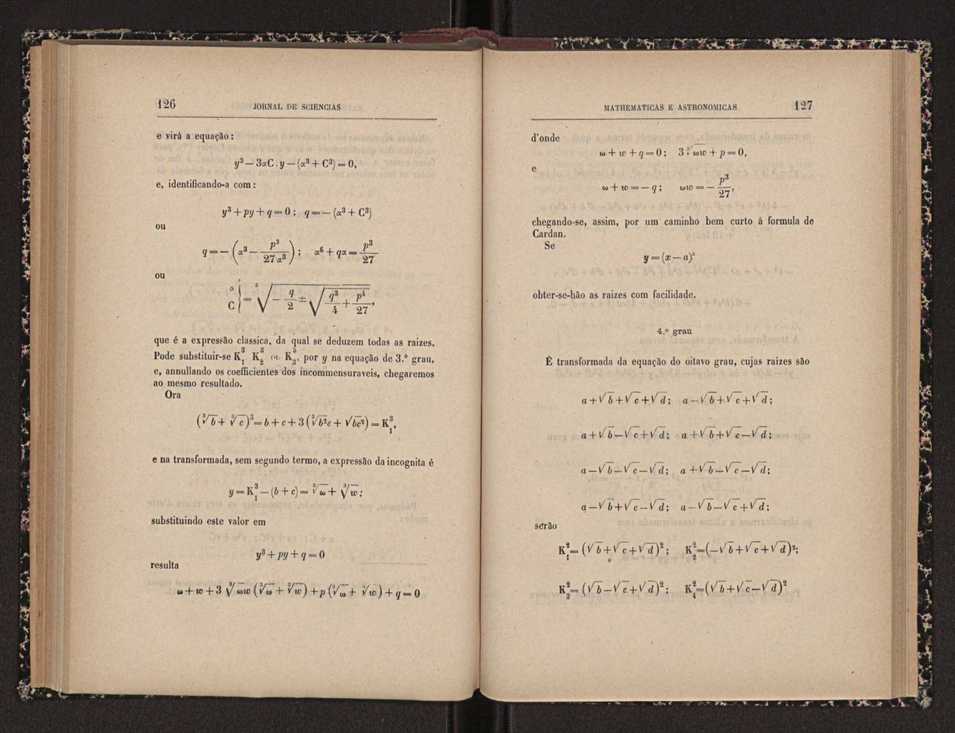 126 JORNAL DE SCIENCIAS
e virá a equação :
y³ — 3αC . y — (α³ + C³) = 0,
e, identificando-a com :
y³ + py + q = 0 ; q = — (α³ + C³)
ou
q = — (α³ — p³/27α³) ; α⁶ + qα = p³/27
ou
α C } = ∛(— q/2 ± √(q²/4 + p³/27)),
que é a expressão classica, da qual se deduzem todas as raizes.
Pode substituir-se K₁³ K₂³ ou K₃³, por y na equação de 3.º grau,
e, annullando os coefficientes dos incommensuraveis, chegaremos
ao mesmo resultado.
Ora
(∛b + ∛c)³ = b + c + 3 (∛b²c + √bc²) = K₁³,
e na transformada, sem segundo termo, a expressão da incognita é
y = K₁³ — (b + c) = ∛ω + ∛w ;
substituindo este valor em
y³ + py + q = 0
resulta
ω + w + 3 ∛ωw (∛ω + ∛w) + p (∛ω + ∛w) + q = 0
MATHEMATICAS E ASTRONOMICAS 127
d'onde
ω + w + q = 0 ; 3 ∛ωw + p = 0,
e
ω + w = — q ; ωw = — p³/27,
chegando-se, assim, por um caminho bem curto á formula de
Cardan.
Se
y = (x — a)³
obter-se-hão as raizes com facilidade.
4.º grau
É transformada da equação do oitavo grau, cujas raizes são
a + √b + √c + √d ; a — √b + √c + √d ;
a + √b — √c + √d ; a + √b + √c — √d ;
a — √b — √c — √d ; a + √b — √c — √d ;
a — √b + √c — √d ; a — √b — √c + √d ;
serão
K₁² = (√b + √c + √d)² ; K₂² = (— √b + √c + √d)² ;
K₃² = (√b — √c + √d)² ; K₄² = (√b + √c — √d)²